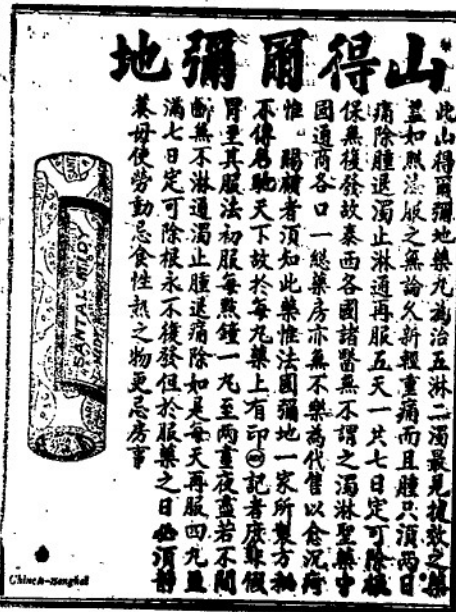 山得爾彌地
此山得爾彌地藥丸為治五淋二濁最見捷效之藥
如照法服之無論久新輕重痛而且腫只須兩日
痛除腫退濁止淋通再服五天一共七日定可除根
保無復發故泰西各國諸醫無不謂之濁淋聖藥中
國通商各口一總藥房亦無不樂為代售以愈沉疴
惟賜顧者須知此藥惟法國彌地一家所製方
不傳名馳天下故於每丸藥上有印記者庶非假
冒至其服法初服每點鐘一丸至兩晝夜盡若不間
斷無不淋通濁止腫退痛除如是每天再服四丸
滿七日定可除根永不復發但於服藥之日必須靜
養毋使勞動忌食性熱之物更忌房事
SANTAL MIDY
MIDY